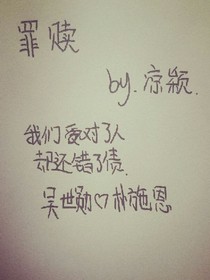 罪赎
by.凉颖.
我们爱对了人
却还错了债.
吴世勋♡朴施恩